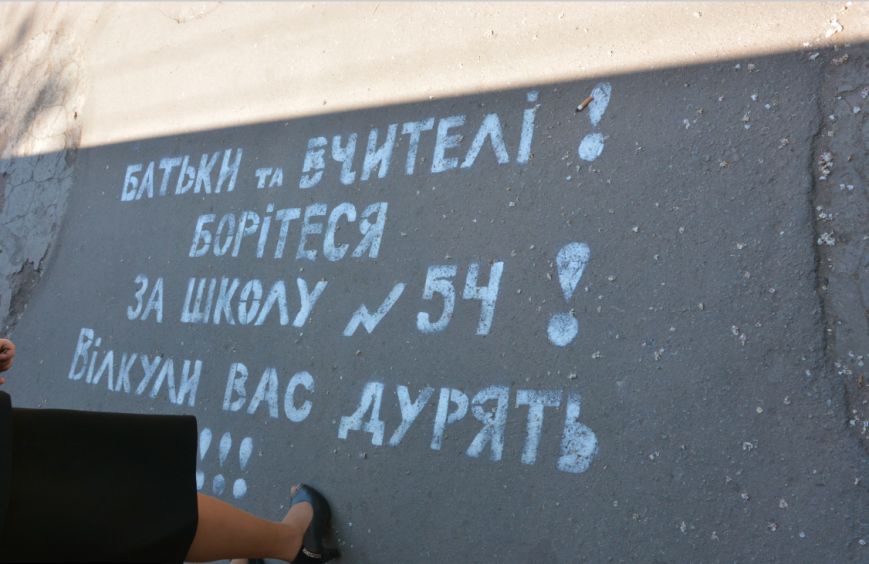 БАТЬКИ ТА ВЧИТЕЛІ !
БОРІТЕСЯ
ЗА ШКОЛУ N 54 !
ВІЛКУЛИ ВАС ДУРЯТЬ
!!!